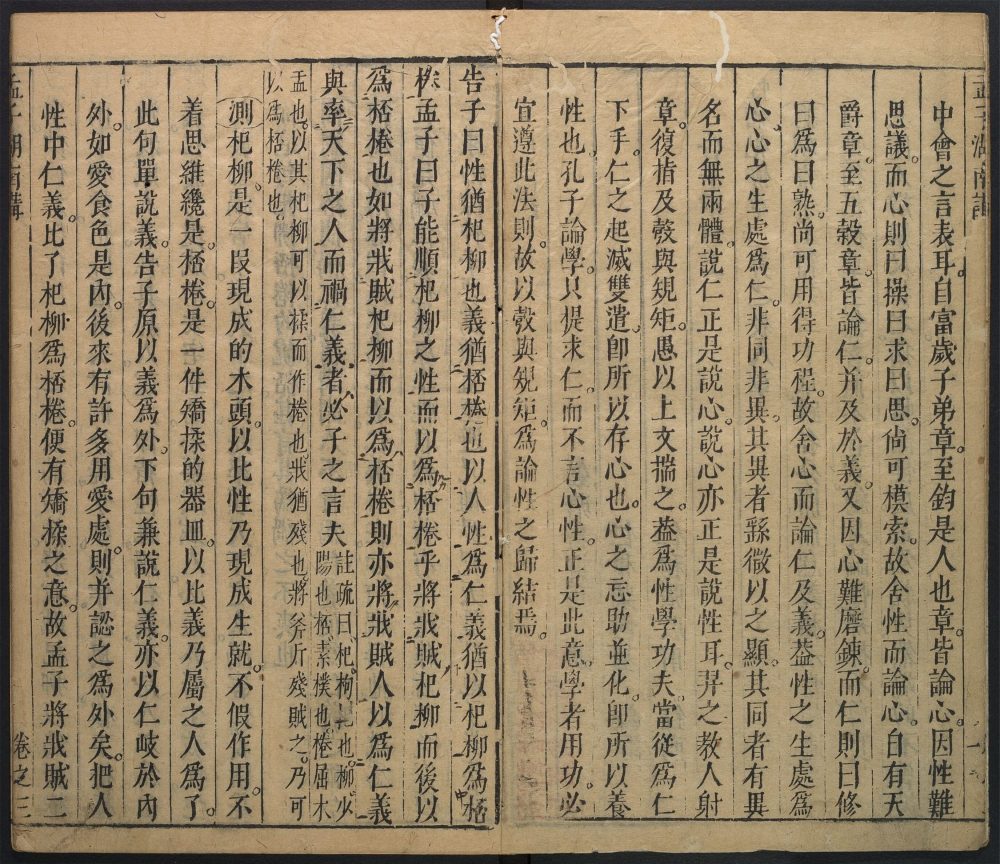 中會之言表耳自富歲子弟章至鈞是人也章皆論心因性難
思議而心則曰操曰求曰思尚可模索故舍性而論心自有天
爵章至五穀章皆論仁并及於義又因心難磨鍊而仁則曰修
曰爲曰熟尚可用得功程故舍心而論仁及義葢性之生處爲
心心之生處爲仁非同非異其異者繇微以之顯其同者有異
名而無兩體說仁正是說心說心亦正是說性耳羿之敎人射
章復指及彀與規矩愚以上文揣之葢爲性學功夫當從爲仁
下手仁之起滅雙遣卽所以存心也心之忘助並化卽所以養
性也孔子論學只提求仁而不言心性正是此意學者用功必
宜遵此法則故以彀與規矩爲論性之歸結焉
告子曰性猶杞柳也義猶桮棬也以人性爲仁義猶以杞柳爲桮
棬孟子曰子能順杞柳之性而以爲桮棬乎將戕賊杞柳而後以
爲桮棬也如將戕賊杞柳而以爲桮棬則亦將戕賊人以爲仁義
與率天下之人而禍仁義者必子之言夫
註疏曰杞枸杞也柳少
陽也桮素樸也棬屈木
孟也以其杞柳可以揉而作棬也戕猶殘也將斧斤殘賊之乃可
以爲桮棬也
測杞柳是一段現成的木頭以比性乃現成生就不假作用不
着思維纔是桮棬是一件矯揉的器皿以比義乃屬之人爲了
此句單說義告子原以義爲外下句兼說仁義亦以仁岐於內
外如愛食色是內後來有許多用愛處則并認之爲外矣把人
性中仁義比了杞柳爲桮棬便有矯揉之意故孟子將戕賊二
孟子湖南講
卷之三